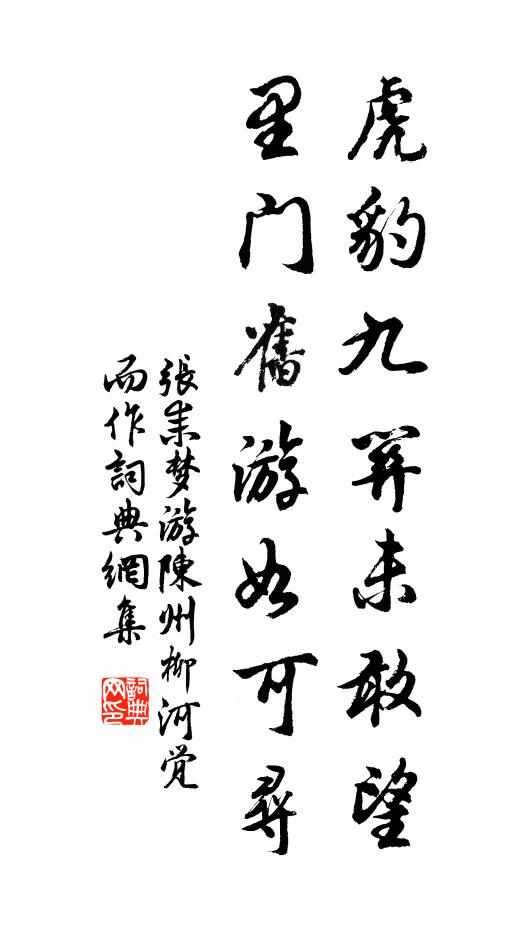 虎豹九關未敢望
里門舊游如可尋
張耒梦游陳州柳河觉
而作詞典網集
詞典
网印